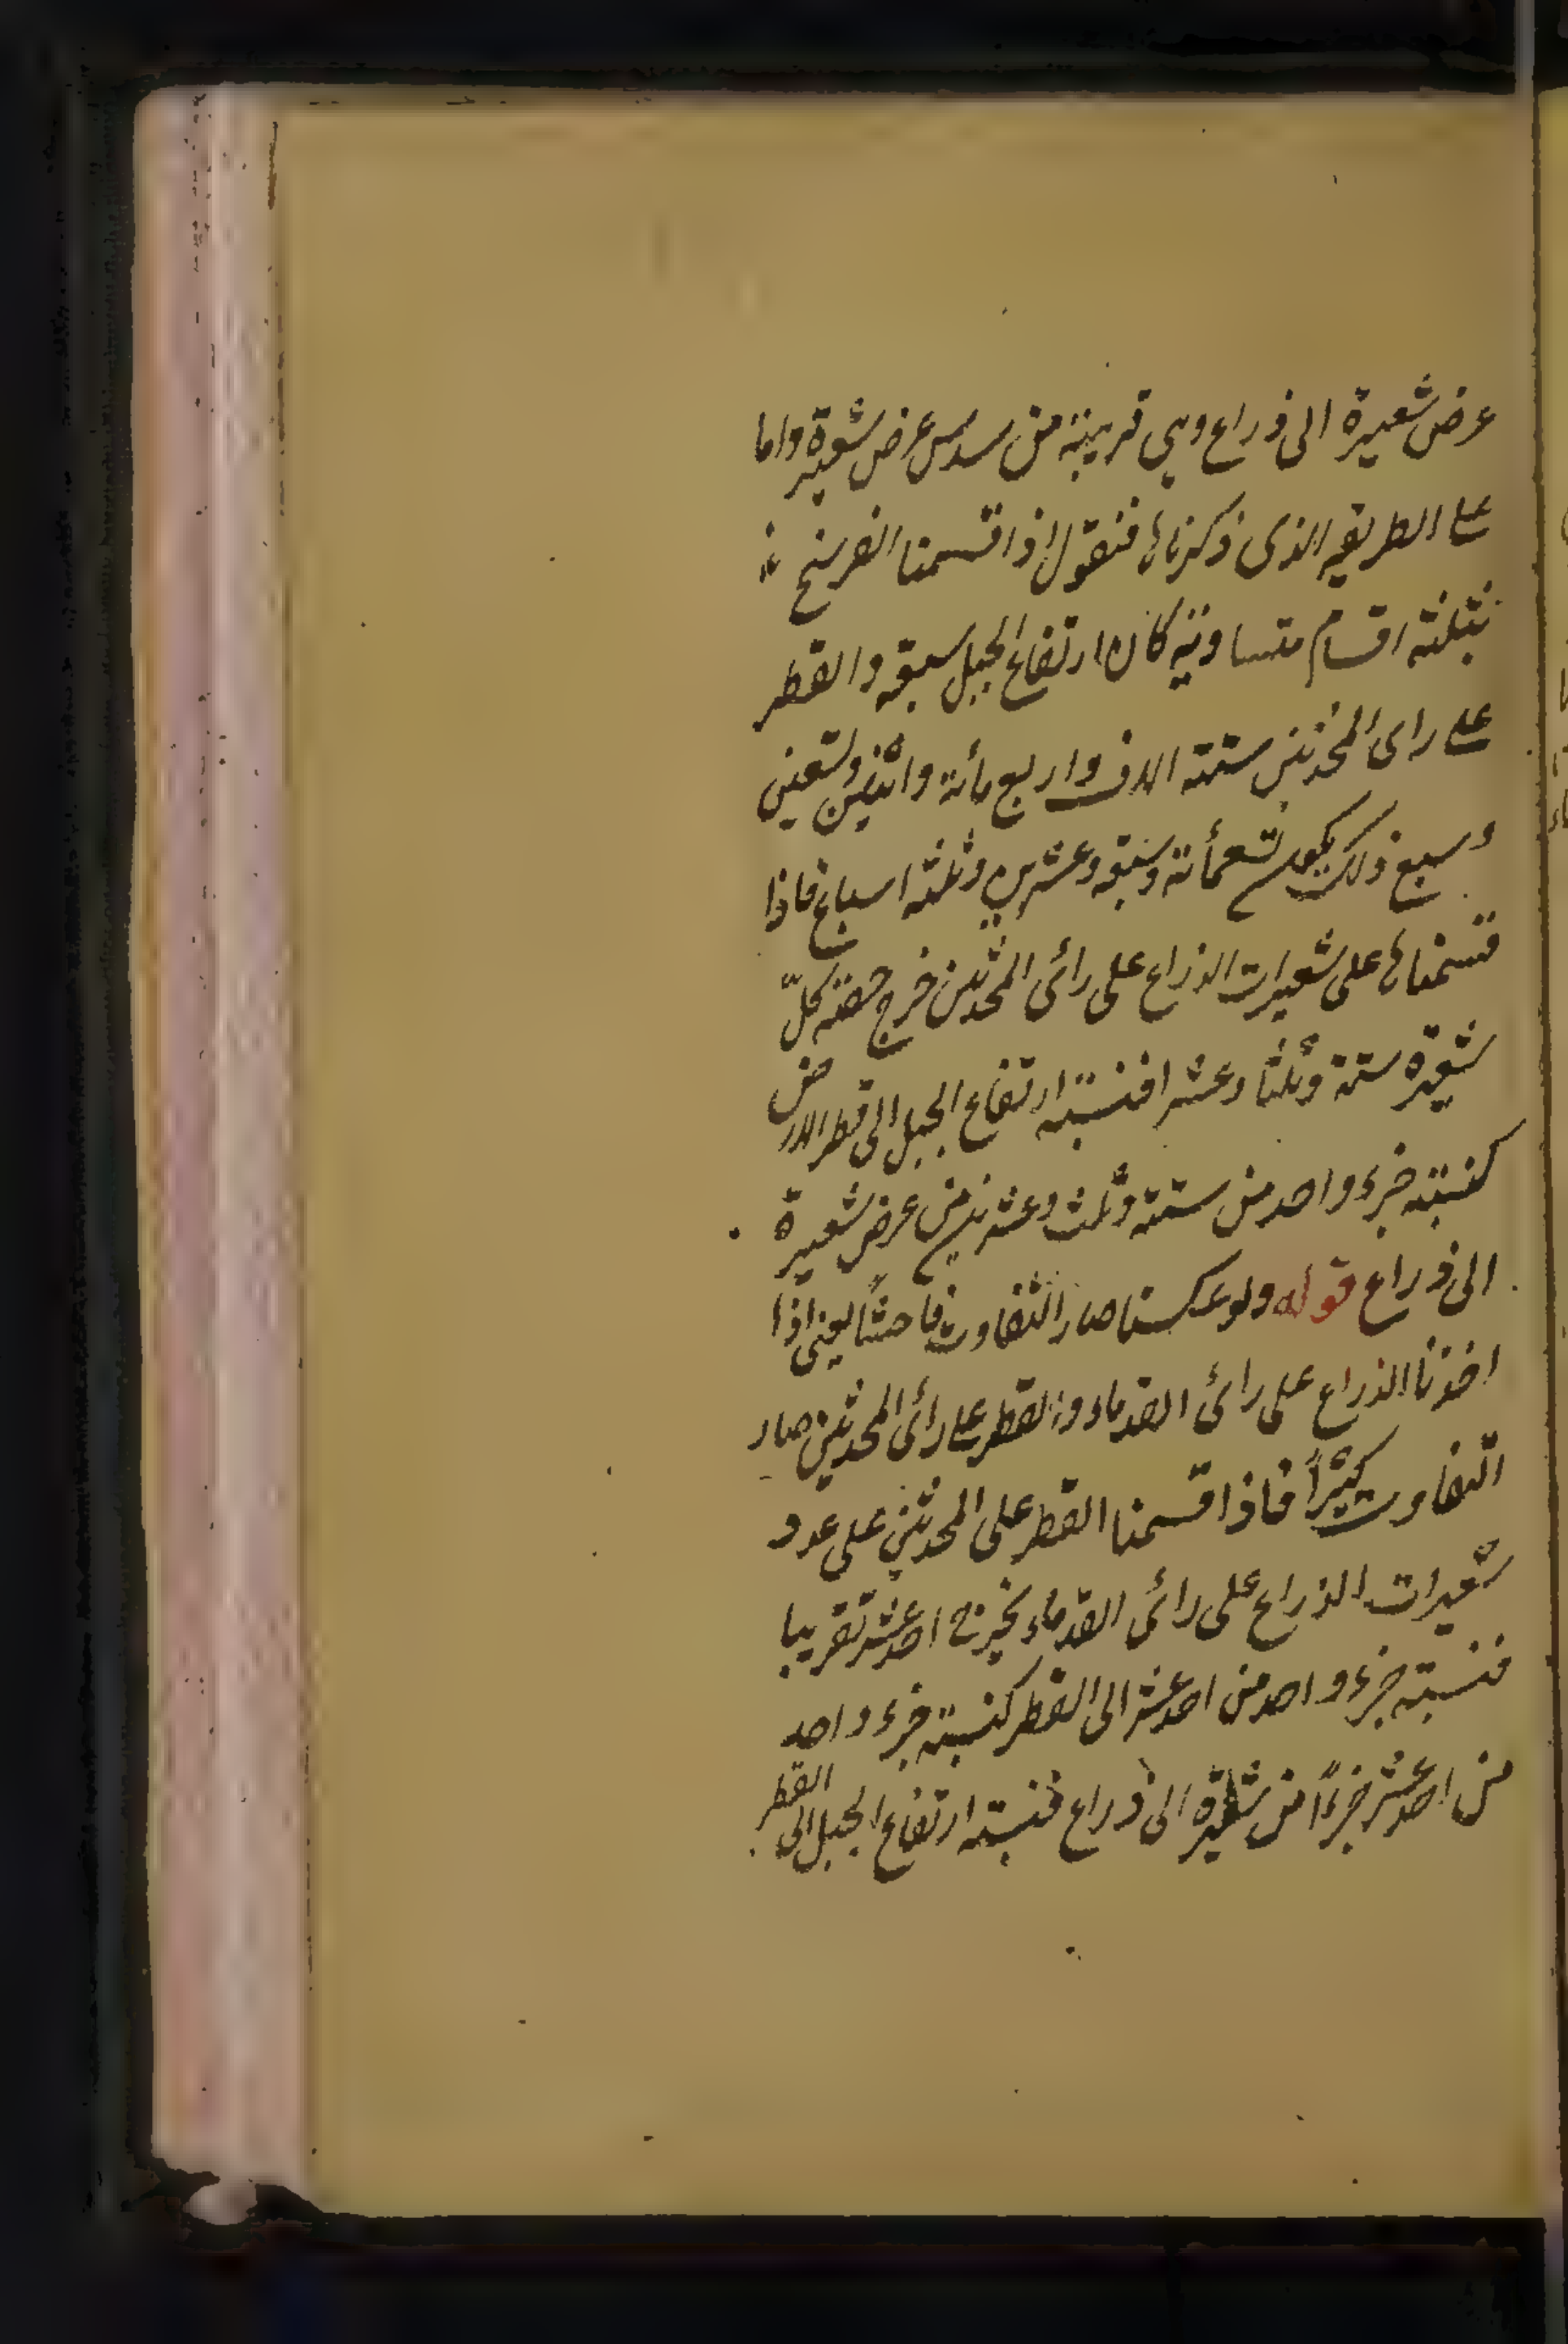 عرض شعيرة الى ذراع وهى قريبة من سدس عرض شعيرة واما
على الطريقة الذى ذكرناها فنقول اذا قسمنا الفرسخ
بثلثة اقسام متساوية كان ارتفاع الجبل سبعة والقطر
على راى المحدثين ستة الاف واربع مائة واثنين وتسعين
وسبع ذلك يكون تسعمائة وسبعة وعشرين وثلثة اسباع فاذا
قسمناها على شعيرات الذراع على رائى المحدثين خرج حصة كلّ
شعيرة ستة وثلثا وعشرا فنسبة ارتفاع الجبل الى قطر الارض
كنسبة جزء واحد من ستة وثلث وعشر من عرض شعيرة
الى ذراع قوله ولو عكسنا صار التفاوت فاحشًا يعنى اذا
اخذنا الذراع على رائى القدماء والقطر على رائى المحدثين صار
التفاوت كثيرًا فاذا قسمنا القطر على المحدثين على عدد
شعيرات الذراع على رائى القدماء يخرج احد عشر تقريبا
فنسبة جزء واحد من احد عشر الى القطر كنسبة جزء واحد
من احد عشر جزءًا من شعيرة الى ذراع فنسبة ارتفاع الجبل الى القطر